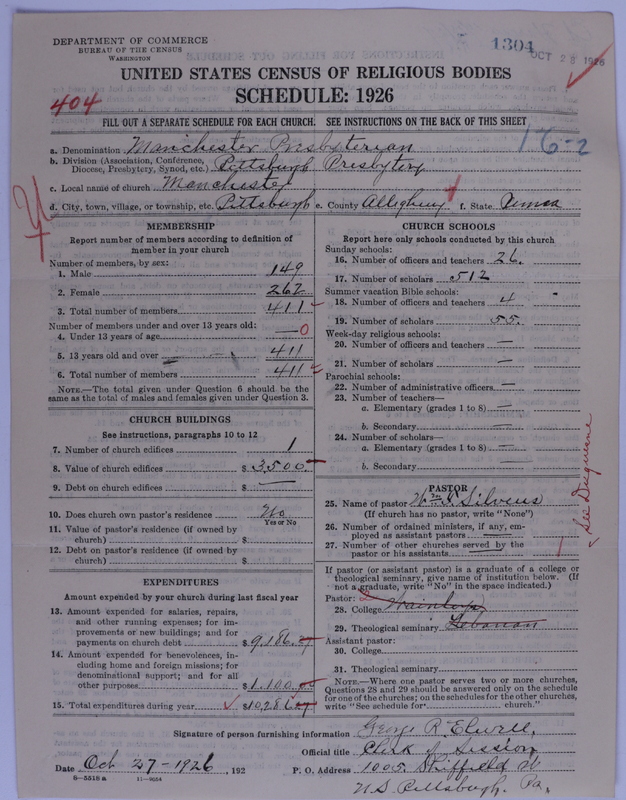 DEPARTMENT OF COMMERCE
BUREAU OF THE CENSUS
WASHINGTON
1304
OCT 28 1926
UNITED STATES CENSUS OF RELIGIOUS BODIES
SCHEDULE: 1926
404
FILL OUT A SEPARATE SCHEDULE FOR EACH CHURCH. SEE INSTRUCTIONS ON THE BACK OF THIS SHEET
16-2
a. Denomination Manchester Presbyterian
b. Division (Association, Conference, Diocese, Presbytery, Synod, etc.) Pittsburgh Presbytery
c. Local name of church Manchester
d. City, town, village, or township, etc. Pittsburgh e. County Allegheny f. State Penna
MEMBERSHIP
Report number of members according to definition of
member in your church
Number of members, by sex:
1. Male 149
2. Female 262
3. Total number of members 411
Number of members under and over 13 years old:
4. Under 13 years of age — 0
5. 13 years old and over 411
6. Total number of members 411
NOTE.—The total given under Question 6 should be the
same as the total of males and females given under Question 3.
CHURCH BUILDINGS
See instructions, paragraphs 10 to 12
7. Number of church edifices 1
8. Value of church edifices $ 3,500
9. Debt on church edifices $ —
10. Does church own pastor's residence No
Yes or No
11. Value of pastor's residence (if owned by
church) $
12. Debt on pastor's residence (if owned by
church) $
EXPENDITURES
Amount expended by your church during last fiscal year
13. Amount expended for salaries, repairs,
and other running expenses; for im-
provements or new buildings; and for
payments on church debt $ 9,186.27
14. Amount expended for benevolences, in-
cluding home and foreign missions; for
denominational support; and for all
other purposes $ 1,100.00
15. Total expenditures during year $ 10,286.27
CHURCH SCHOOLS
Report here only schools conducted by this church
Sunday schools:
16. Number of officers and teachers 26.
17. Number of scholars 512
Summer vacation Bible schools:
18. Number of officers and teachers 4
19. Number of scholars 55.
Week-day religious schools:
20. Number of officers and teachers —
21. Number of scholars —
Parochial schools:
22. Number of administrative officers —
23. Number of teachers—
a. Elementary (grades 1 to 8) —
b. Secondary —
24. Number of scholars—
a. Elementary (grades 1 to 8) —
b. Secondary —
PASTOR
25. Name of pastor Wm Silveus
(If church has no pastor, write "None")
26. Number of ordained ministers, if any, em-
ployed as assistant pastors —
27. Number of other churches served by the
pastor or his assistants 1
See Duquesne
If pastor (or assistant pastor) is a graduate of a college or
theological seminary, give name of institution below. (If
not a graduate, write "No" in the space indicated.)
Pastor:
28. College
29. Theological seminary Lebanon
Assistant pastor:
30. College
31. Theological seminary
NOTE.—Where one pastor serves two or more churches,
Questions 28 and 29 should be answered only on the schedule
for one of the churches; on the schedules for the other churches,
write "See schedule for church."
Signature of person furnishing information George R. Elwell
Official title Clerk of Session
Date Oct 27-1926, 192 P. O. Address 1005. Shiffield St
N.S. Pittsburgh. Pa.
8—5318 a 11—9054